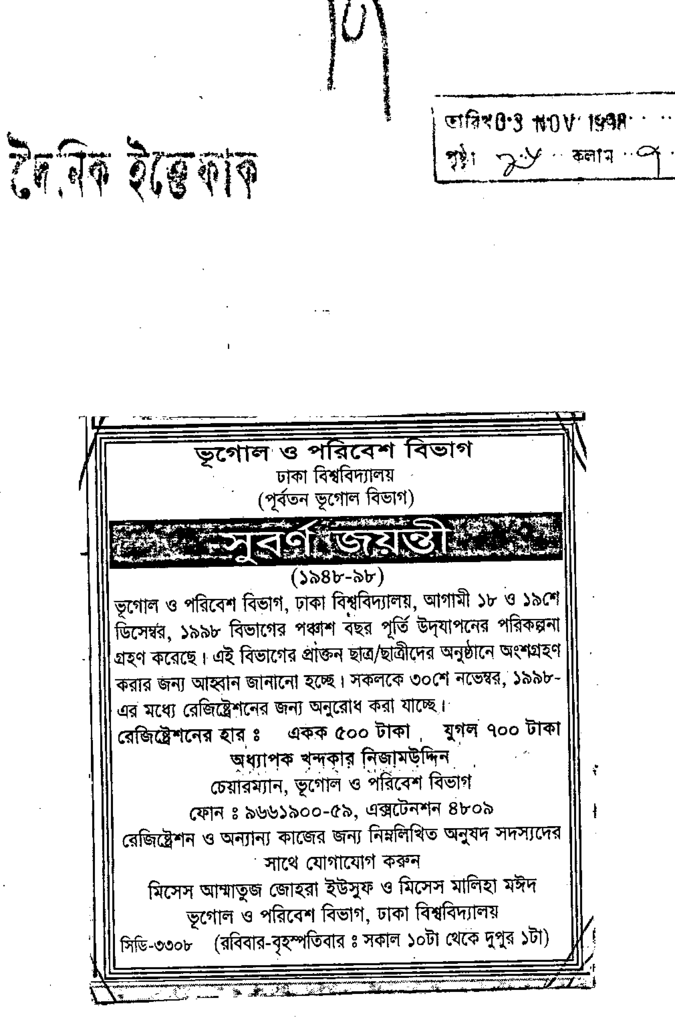 দৈনিক ইত্তেফাক
তারিখ 03 NOV 1998
পৃষ্ঠা কলাম ৭
ভূগোল ও পরিবেশ বিভাগ
ঢাকা বিশ্ববিদ্যালয়
(পূর্বতন ভূগোল বিভাগ)
সুবর্ণ জয়ন্তী
(১৯৪৮-৯৮)
ভূগোল ও পরিবেশ বিভাগ, ঢাকা বিশ্ববিদ্যালয়, আগামী ১৮ ও ১৯শে
ডিসেম্বর, ১৯৯৮ বিভাগের পঞ্চাশ বছর পূর্তি উদ্‌যাপনের পরিকল্পনা
গ্রহণ করেছে। এই বিভাগের প্রাক্তন ছাত্র/ছাত্রীদের অনুষ্ঠানে অংশগ্রহণ
করার জন্য আহ্বান জানানো হচ্ছে। সকলকে ৩০শে নভেম্বর, ১৯৯৮-
এর মধ্যে রেজিষ্ট্রেশনের জন্য অনুরোধ করা যাচ্ছে।
রেজিষ্ট্রেশনের হার ঃ একক ৫০০ টাকা যুগল ৭০০ টাকা
অধ্যাপক খন্দকার নিজামউদ্দিন
চেয়ারম্যান, ভূগোল ও পরিবেশ বিভাগ
ফোন ঃ ৯৬৬১৯০০-৫৯, এক্সটেনশন ৪৮০৯
রেজিষ্ট্রেশন ও অন্যান্য কাজের জন্য নিম্নলিখিত অনুষদ সদস্যদের
সাথে যোগাযোগ করুন
মিসেস আম্মাতুজ জোহরা ইউসুফ ও মিসেস মালিহা মঈদ
ভূগোল ও পরিবেশ বিভাগ, ঢাকা বিশ্ববিদ্যালয়
সিডি-৩৩০৮ (রবিবার-বৃহস্পতিবার ঃ সকাল ১০টা থেকে দুপুর ১টা)